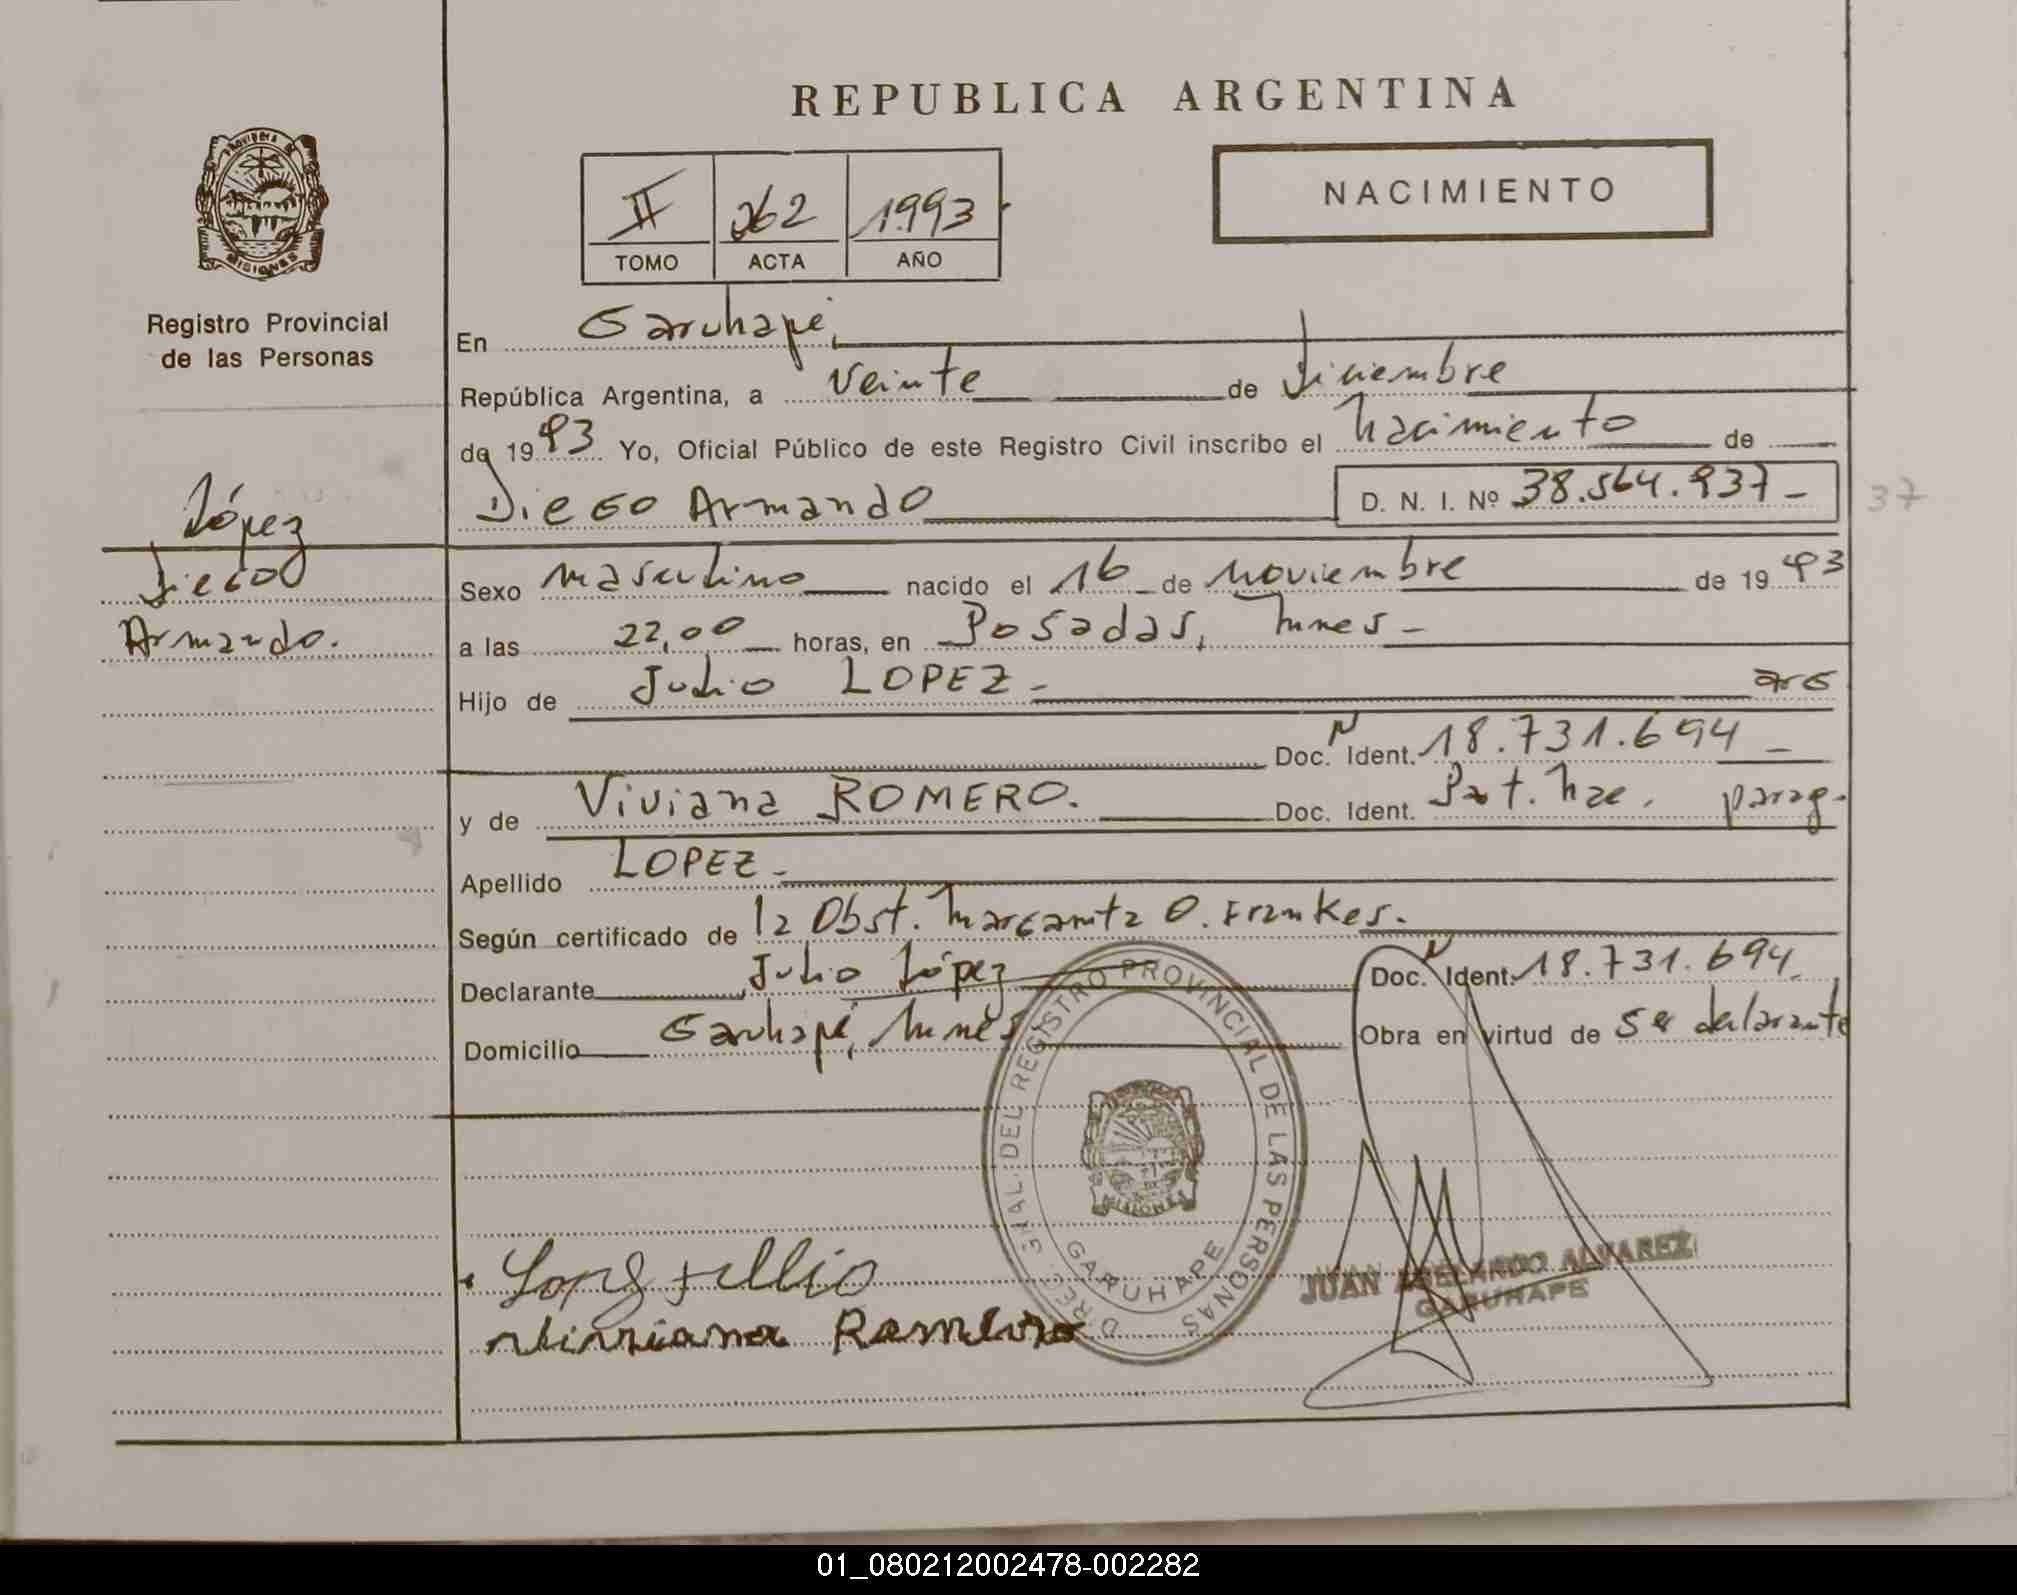 REPUBLICA ARGENTINA
PROVINCIA DE
MISIONES
Registro Provincial
de las Personas
II 262 1993
TOMO ACTA AÑO
NACIMIENTO
En Garuhapé,
República Argentina, a Veinte de diciembre
de 1993 Yo, Oficial Público de este Registro Civil inscribo el nacimiento de
Diego Armando D. N. I. Nº 38.564.937-
37
López
Diego
Armando.
Sexo masculino nacido el 16 de noviembre de 1993
a las 22,00 horas, en Posadas, Mnes-
Hijo de Julio LOPEZ- arg
Doc. Ident. 18.731.694-
y de Viviana ROMERO. Doc. Ident. Part. Nac. parag.
Apellido LOPEZ-
Según certificado de la Obst. Margarita O. Frankes.
Declarante Julio López Doc. Ident. 18.731.694
Domicilio Garuhapé, Mnes Obra en virtud de ser declarante
DIREC. GRAL. DEL REGISTRO PROVINCIAL DE LAS PERSONAS
GARUHAPE
JUAN ABELARDO ALVAREZ
GARUHAPE
Viviana Romero
01_080212002478-002282